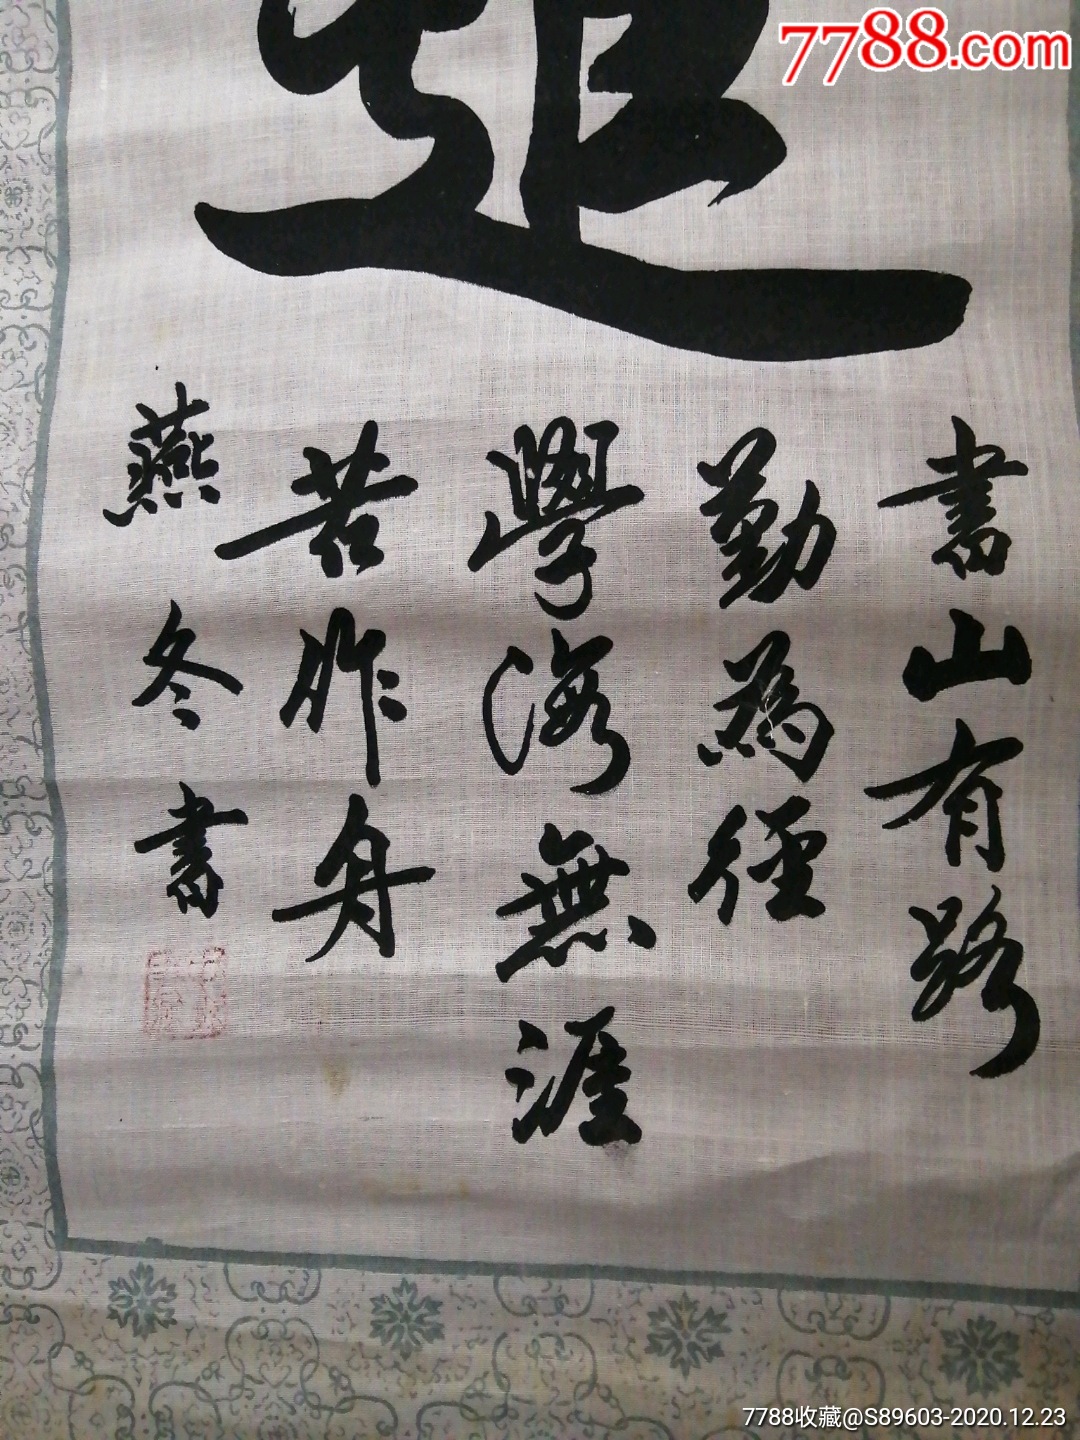 7788.com
書山有路
勤為徑
學海無涯
苦作舟
燕冬書
7788收藏@S89603-2020.12.23